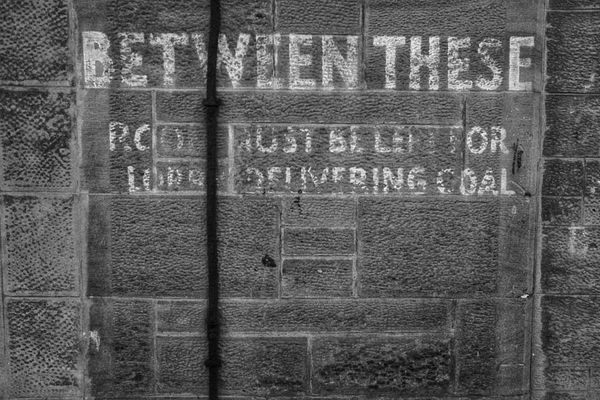 BETWEEN THESE
MUST BE LEFT FOR
LORRY DELIVERING COAL